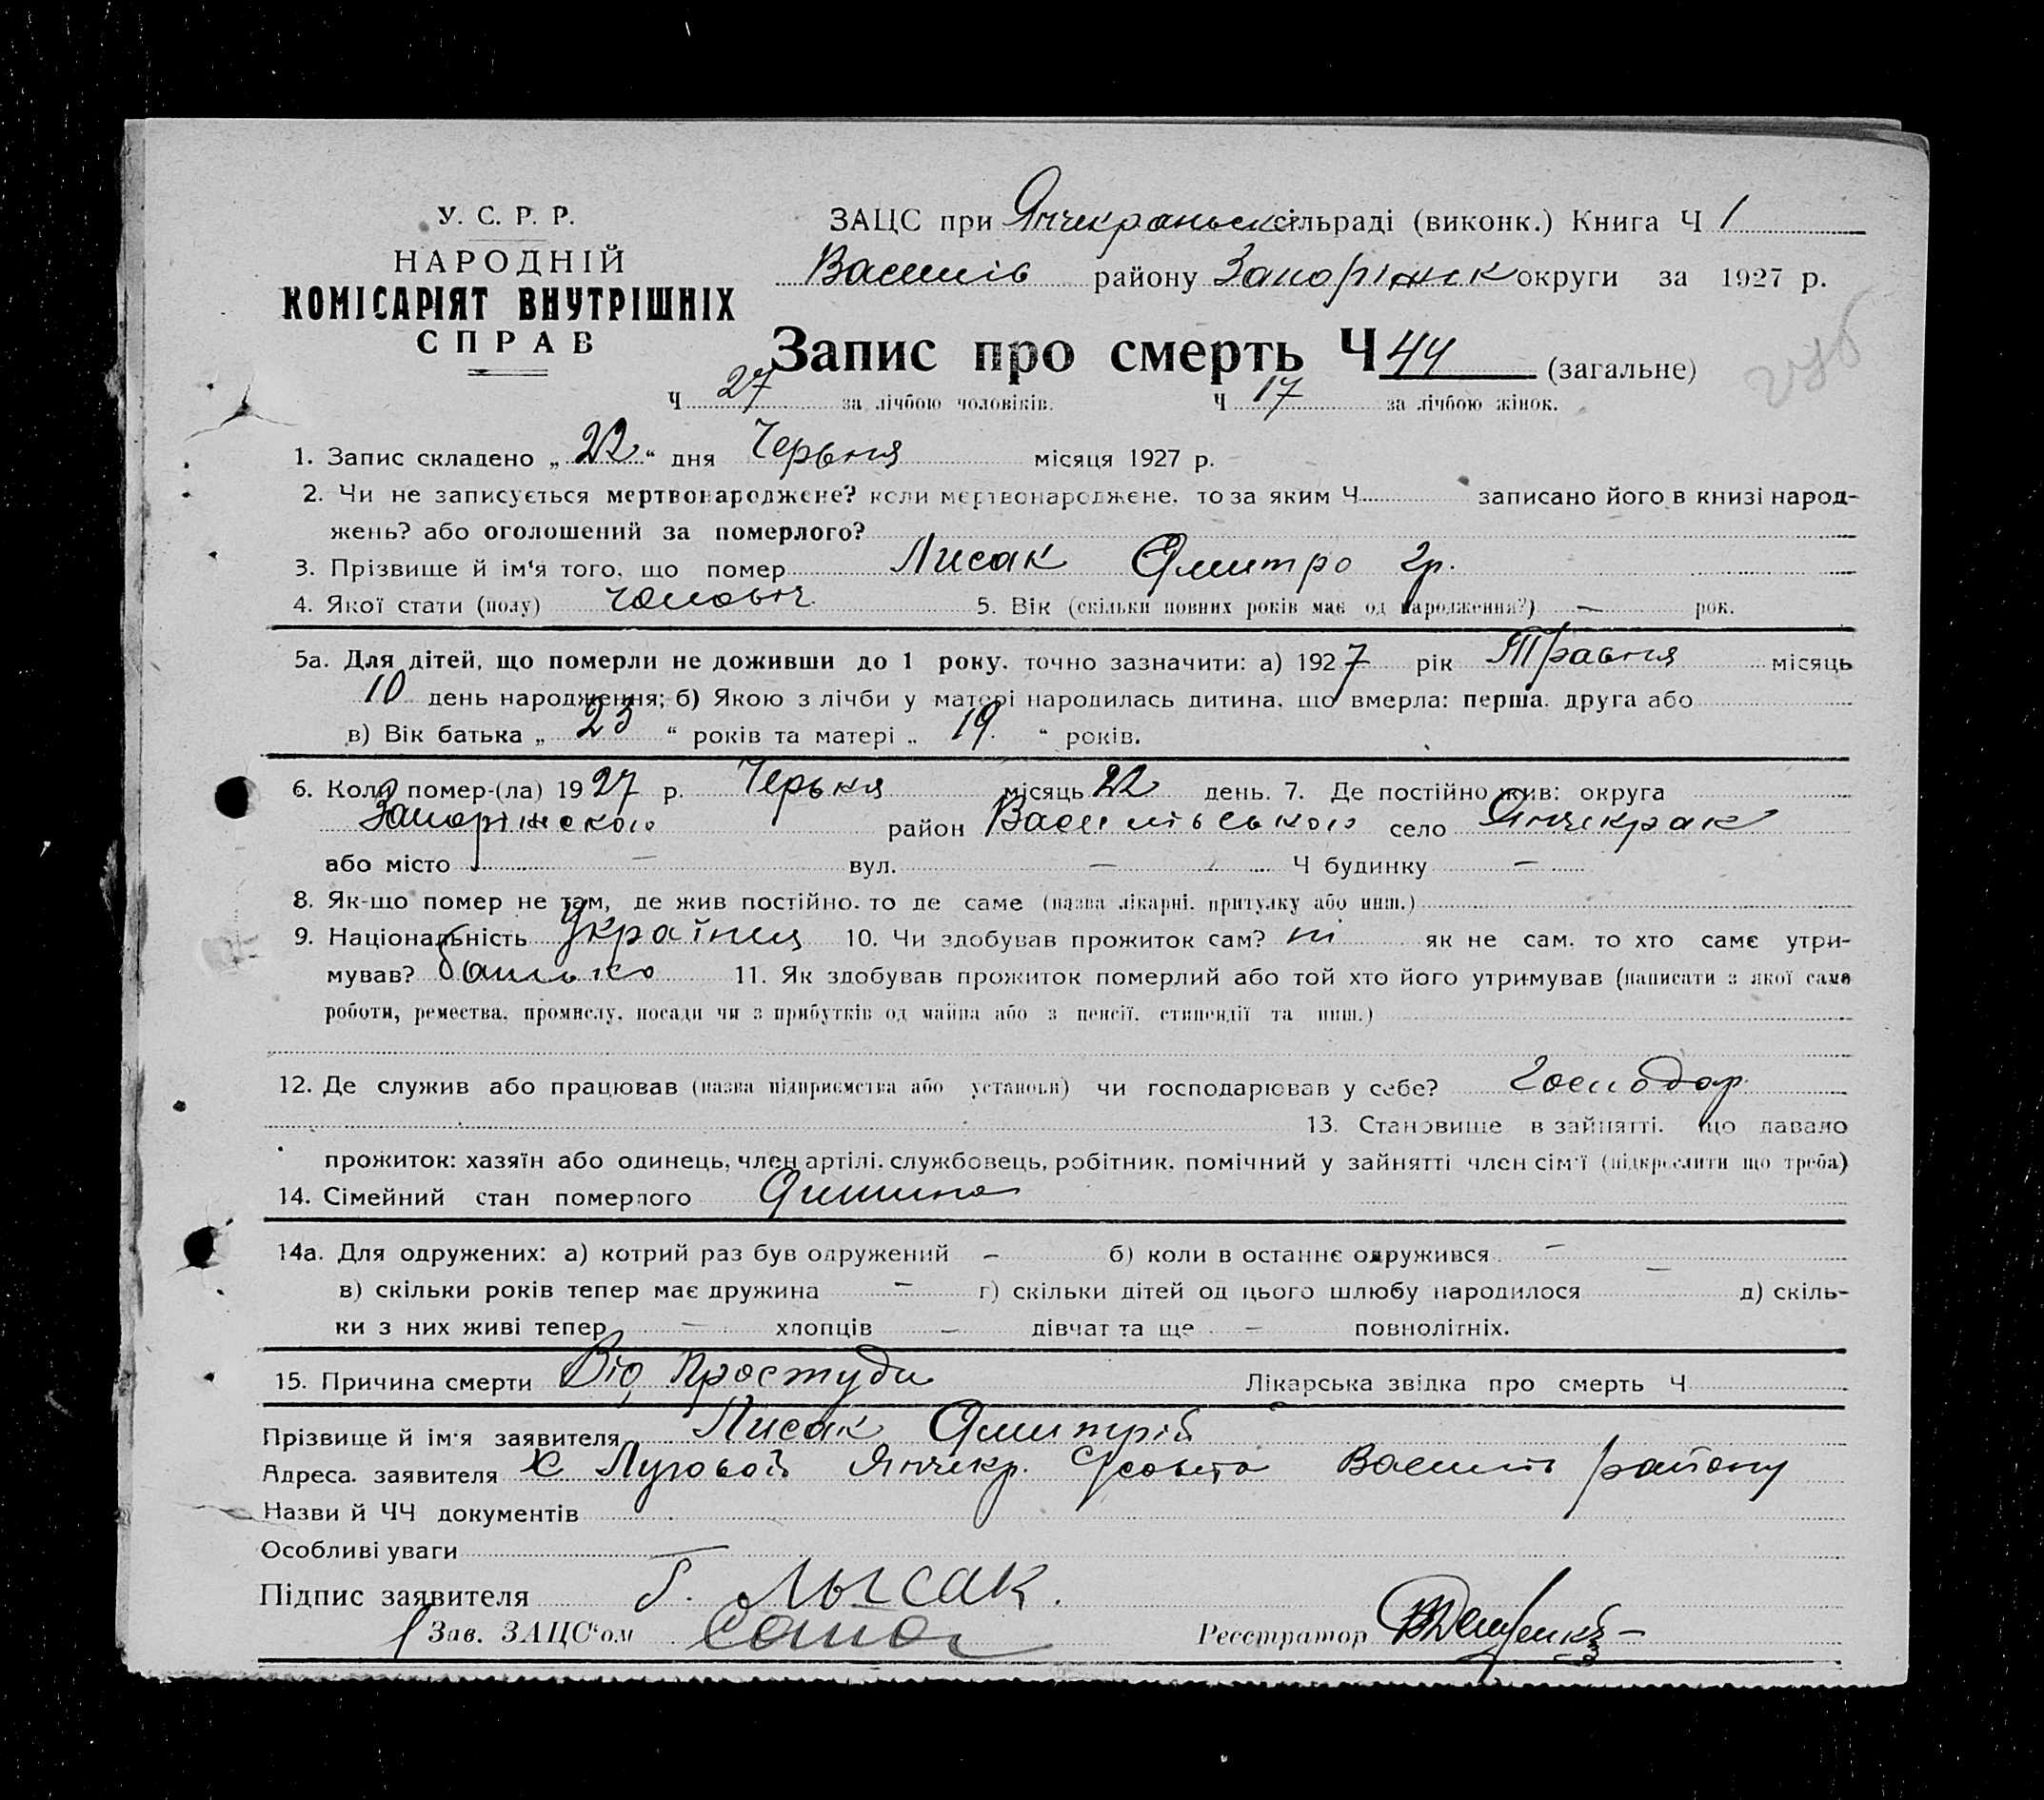 У. С. Р. Р.
НАРОДНІЙ
КОМІСАРІЯТ ВНУТРІШНІХ
СПРАВ
ЗАЦС при Янчекраньск сільраді (виконк.) Книга Ч 1
Василів району Запоріжск округи за 1927 р.
Запис про смерть Ч 44 (загальне)
Ч 27 за лічбою чоловіків. Ч 17 за лічбою жінок.
1. Запис складено „ 22 “ дня Червня місяця 1927 р.
2. Чи не записується мертвонароджене? коли мертвонароджене, то за яким Ч записано його в книзі народ-
жень? або оголошений за померлого?
3. Прізвище й ім‘я того, що помер Лисак Дмитро Гр.
4. Якої стати (полу) чоловіч. 5. Вік (скільки повних років має од народження?) — рок.
5а. Для дітей, що померли не доживши до 1 року, точно зазначити: а) 1927 рік Травня місяць
10 день народження; б) Якою з лічби у матері народилась дитина, що вмерла: перша, друга або
в) Вік батька „ 23 “ років та матері „ 19 “ років.
6. Коли помер-(ла) 1927 р. Червня місяць 22 день. 7. Де постійно жив: округа
Запоріжского район Василівського село Янчекрак
або місто — вул. — Ч будинку —
8. Як-що помер не там, де жив постійно, то де саме (назва лікарні, притулку або инш.)
9. Національність Українец 10. Чи здобував прожиток сам? ні як не сам, то хто саме утри-
мував? батько 11. Як здобував прожиток померлий або той хто його утримував (написати з якої саме
роботи, ремества, промислу, посади чи з прибутків од майна або з пенсії, стипендії та инш.)
12. Де служив або працював (назва підприємства або установи) чи господарював у себе? Господар.
13. Становище в зайнятті, що давало
прожиток: хазяїн або одинець, член артілі, службовець, робітник, помічний у зайнятті член сім‘ї (підкреслити що треба)
14. Сімейний стан померлого Дитина
14а. Для одружених: а) котрий раз був одружений – б) коли в останнє одружився –
в) скільки років тепер має дружина – г) скільки дітей од цього шлюбу народилося — д) скіль-
ки з них живі тепер — хлопців — дівчат та ще — повнолітніх.
15. Причина смерти Від Простуди Лікарська звідка про смерть Ч
Прізвище й ім‘я заявителя Лисак Дмитрій
Адреса заявителя Х Луговой Янчекр. С/совета Василів району
Назви й ЧЧ документів
Особливі уваги
Підпис заявителя Г. Лысак.
Зав. ЗАЦС‘ом
Реєстратор